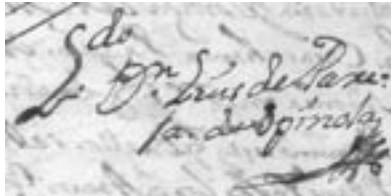 L.do D.n Luis de Pare:
ja de Spinola